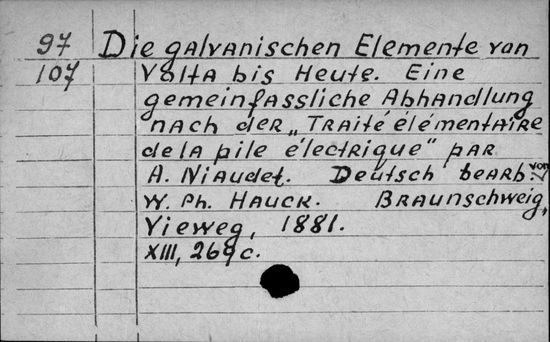 97 Die galvanischen Elemente von
107 Volta bis Heute. Eine
gemeinfassliche Abhandlung
nach der „Traité élémentaire
de la pile électrique" par
A. Niaudet. Deutsch bearb. von
W. Ph. Hauck. Braunschweig,
Vieweg, 1881.
XIII, 269 c.